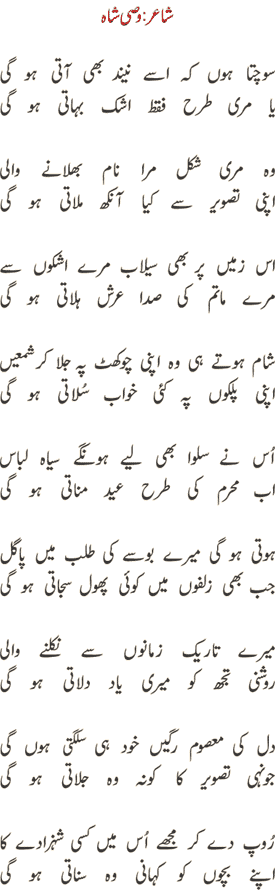 شاعر: وصی شاہ
سوچتا ہوں کہ اسے نیند بھی آتی ہو گی
یا مری طرح فقط اشک بہاتی ہو گی
وہ مری شکل مرا نام بھلانے والی
اپنی تصویر سے کیا آنکھ ملاتی ہو گی
اس زمیں پر بھی سیلاب مرے اشکوں سے
مرے ماتم کی صدا عرش ہلاتی ہو گی
شام ہوتے ہی وہ اپنی چوکھٹ پہ جلا کر شمعیں
اپنی پلکوں پہ کئی خواب سُلاتی ہو گی
اُس نے سلوا بھی لیے ہونگے سیاہ لباس
اب محرم کی طرح عید مناتی ہو گی
ہوتی ہو گی میرے بوسے کی طلب میں پاگل
جب بھی زلفوں میں کوئی پھول سجاتی ہو گی
میرے تاریک زمانوں سے نکلنے والی
روشنی تجھ کو میری یاد دلاتی ہو گی
دل کی معصوم رگیں خود ہی سلگتی ہوں گی
جونہی تصویر کا کونہ وہ جلاتی ہو گی
رُوپ دے کر مجھے اُس میں کسی شہزادے کا
اپنے بچوں کو کہانی وہ سناتی ہو گی